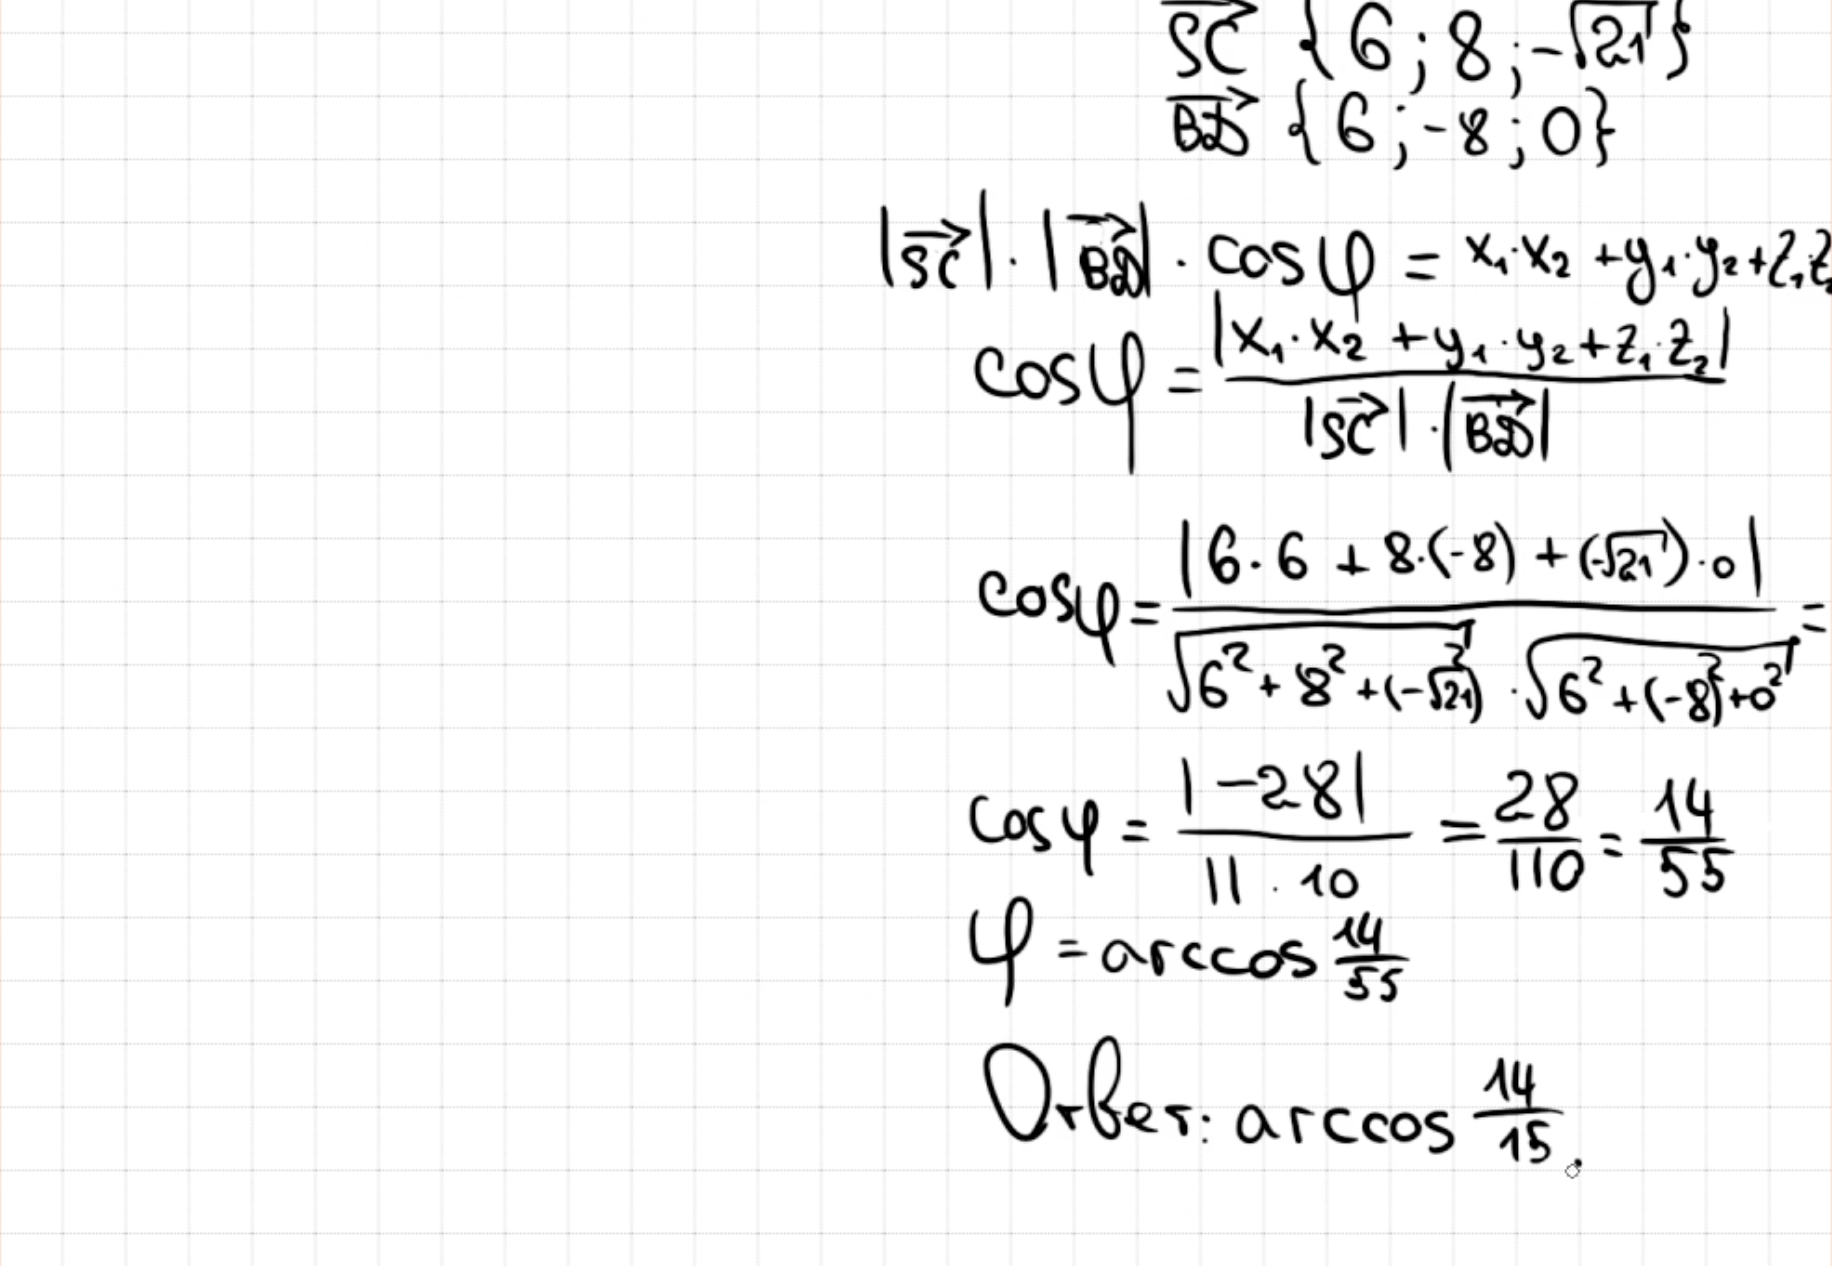 SC⃗ {6; 8; -√21}
BD⃗ {6; -8; 0}
|SC⃗| · |BD⃗| · cosφ = x₁·x₂ + y₁·y₂ + z₁·z₂
cosφ = |x₁·x₂ + y₁·y₂ + z₁·z₂| / |SC⃗| · |BD⃗|
cosφ = |6·6 + 8·(-8) + (-√21)·0| / √(6² + 8² + (-√21)²) · √(6² + (-8)² + 0²) =
cosφ = |-28| / 11 · 10 = 28/110 = 14/55
φ = arccos 14/55
Ответ: arccos 14/15.